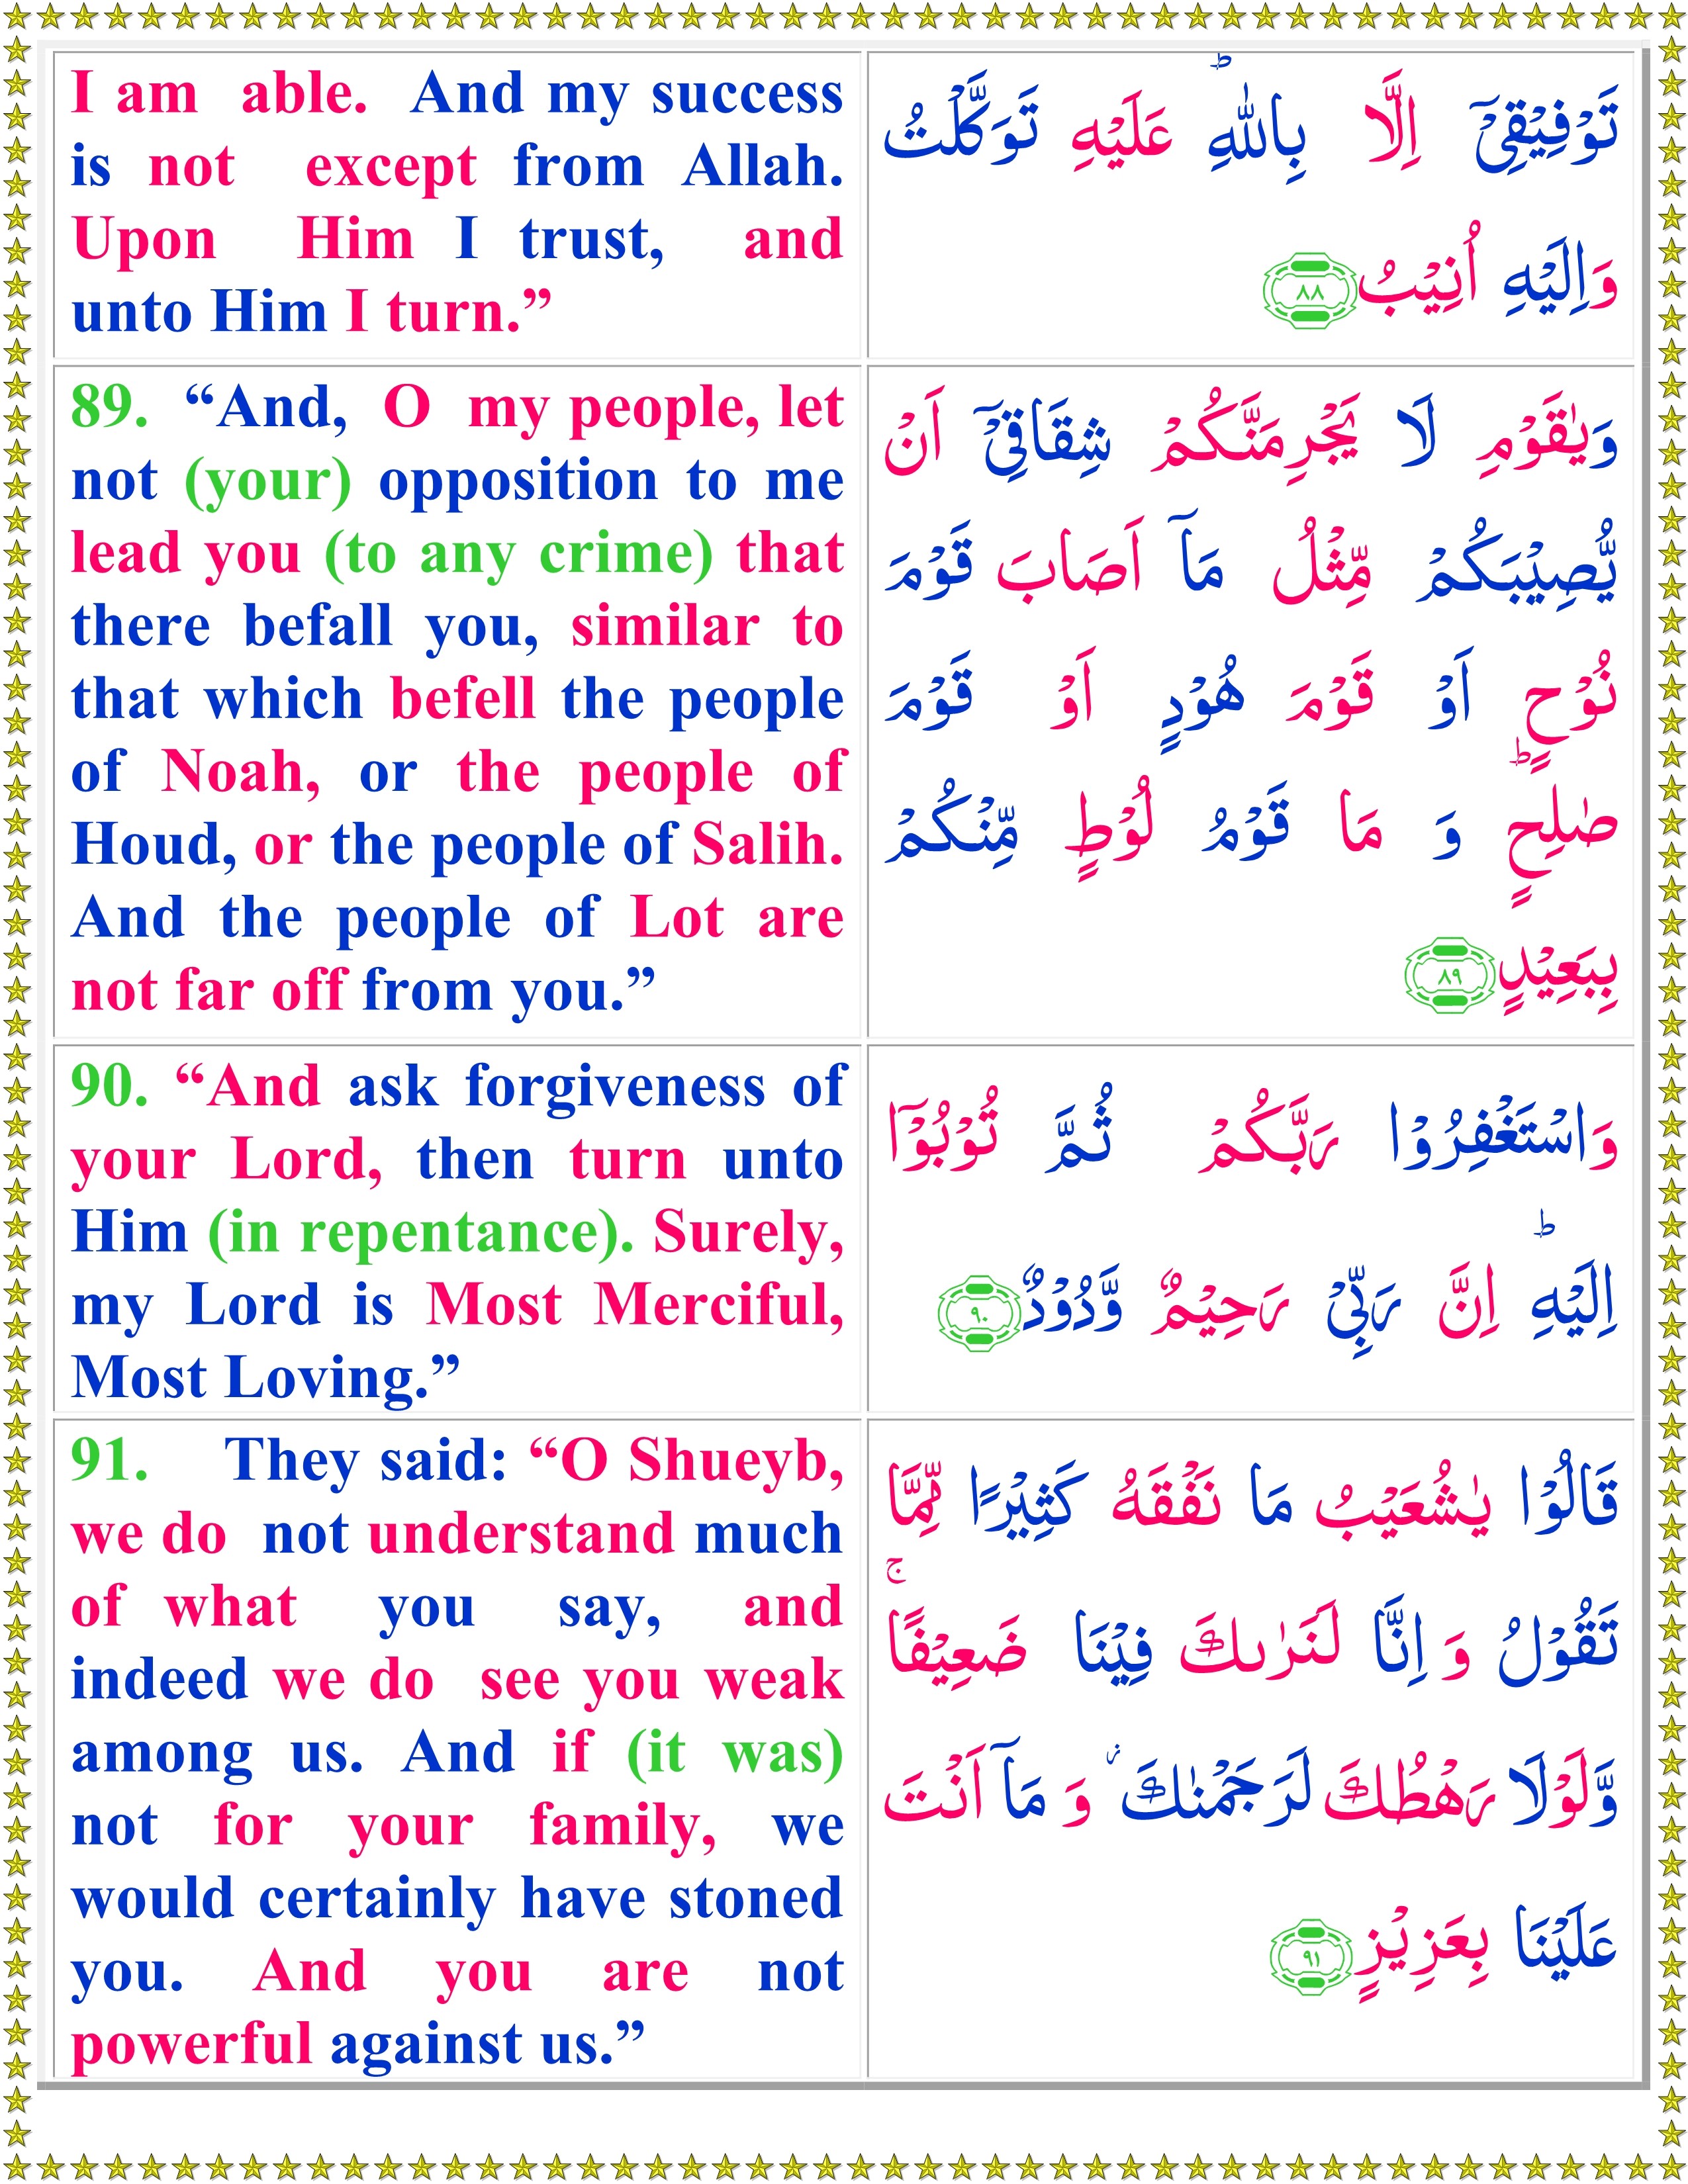 I am able. And my success
is not except from Allah.
Upon Him I trust, and
unto Him I turn.”
تَوْفِيْقِيْٓ اِلَّا بِاللّٰهِ ؕ عَلَيْهِ تَوَكَّلْتُ
وَاِلَيْهِ اُنِيْبُ ٨٨
89. “And, O my people, let
not (your) opposition to me
lead you (to any crime) that
there befall you, similar to
that which befell the people
of Noah, or the people of
Houd, or the people of Salih.
And the people of Lot are
not far off from you.”
وَيٰقَوْمِ لَا يَجْرِمَنَّكُمْ شِقَاقِيْٓ اَنْ
يُّصِيْبَكُمْ مِّثْلُ مَآ اَصَابَ قَوْمَ
نُوْحٍ اَوْ قَوْمَ هُوْدٍ اَوْ قَوْمَ
صٰلِحٍ ؕ وَ مَا قَوْمُ لُوْطٍ مِّنْكُمْ
بِبَعِيْدٍ ٨٩
90. “And ask forgiveness of
your Lord, then turn unto
Him (in repentance). Surely,
my Lord is Most Merciful,
Most Loving.”
وَاسْتَغْفِرُوْا رَبَّكُمْ ثُمَّ تُوْبُوْٓا
اِلَيْهِ ؕ اِنَّ رَبِّيْ رَحِيْمٌ وَّدُوْدٌ ٩٠
91. They said: “O Shueyb,
we do not understand much
of what you say, and
indeed we do see you weak
among us. And if (it was)
not for your family, we
would certainly have stoned
you. And you are not
powerful against us.”
قَالُوْا يٰشُعَيْبُ مَا نَفْقَهُ كَثِيْرًا مِّمَّا
تَقُوْلُ وَ اِنَّا لَنَرٰىكَ فِيْنَا ضَعِيْفًا ۚ
وَّلَوْلَا رَهْطُكَ لَرَجَمْنٰكَ ؗ وَ مَآ اَنْتَ
عَلَيْنَا بِعَزِيْزٍ ٩١